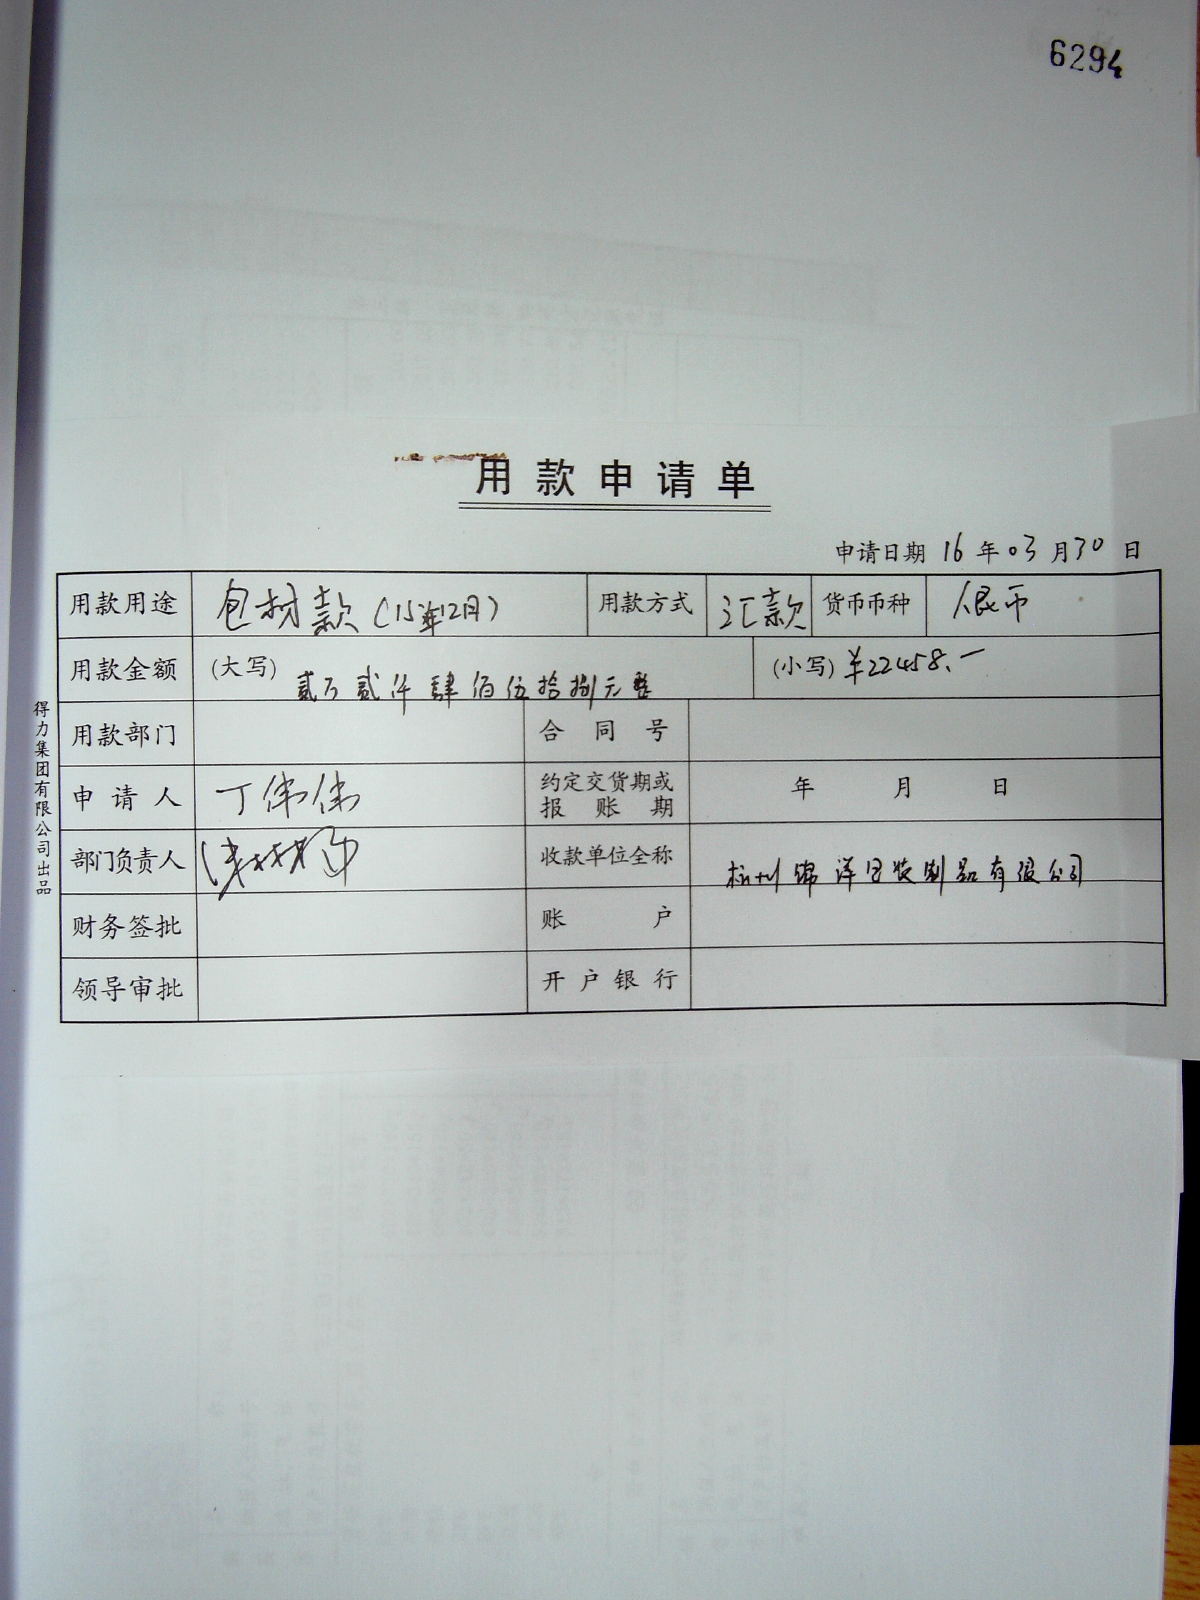 6294
用款申请单
申请日期 16 年 03 月 30 日
用款用途 包材款(15年12月) 用款方式 汇款 货币币种 人民币
用款金额 (大写) 贰万贰仟肆佰伍拾捌元整 (小写) ¥22458.一
用款部门 合同号
申请人 丁伟伟 约定交货期或报账期 年 月 日
部门负责人 收款单位全称 杭州锦洋包装制品有限公司
财务签批 账户
领导审批 开户银行
得力集团有限公司出品